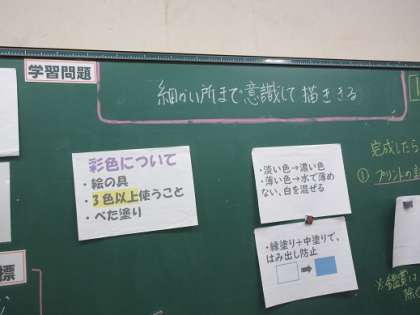 学習問題
細かい所まで意識して描ききる
彩色について
・絵の具
・3色以上使うこと
・べた塗り
・淡い色→濃い色
・薄い色→水で薄め
ない、白を混ぜる
・縁塗り+中塗りで、
はみ出し防止
完成したら
① プリントの
※鑑賞は
標